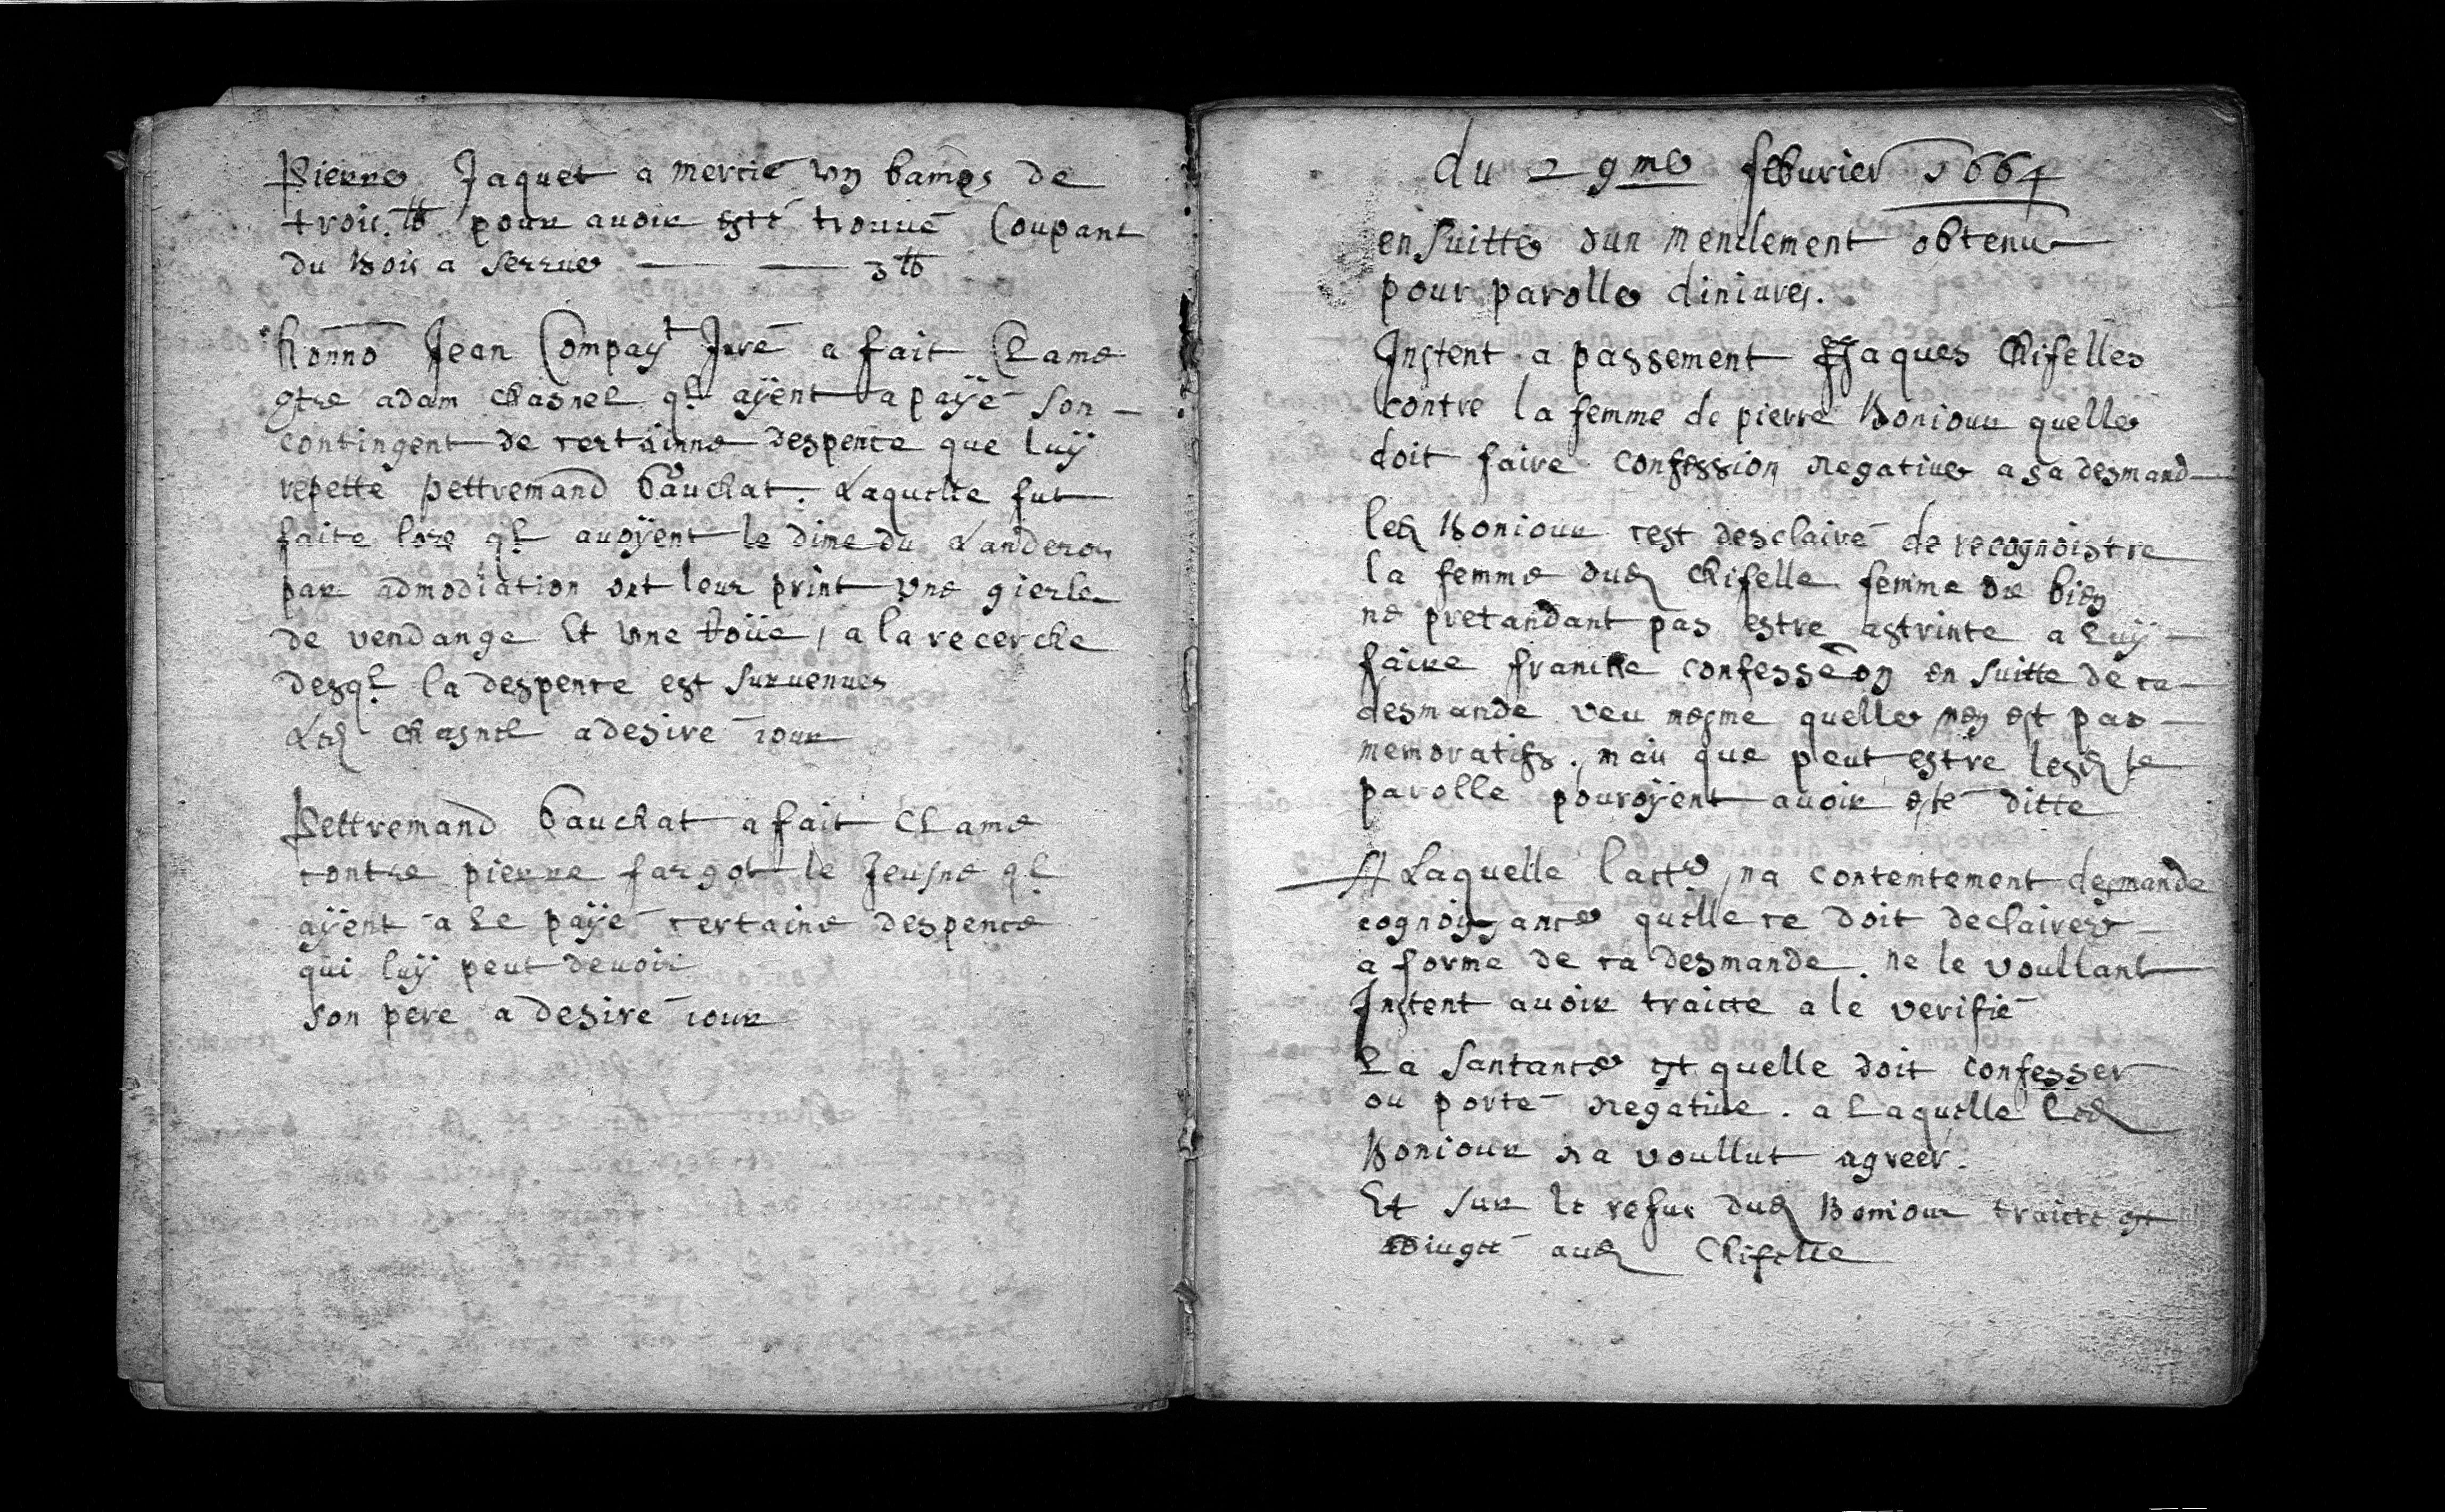 Pierre Jaquet a mercié vng bamps de
trois lb pour auoir esté trouué Coupant
du bois a serrue — — 3 lb
honno Jean Compayt Juré a fait Clame
gtre adam Chasnel ql ayent a payé son
contingent de certainne despence que luÿ
repette pettremand bauchat. Laquelle fut
faite lors ql auoÿent le dime du Landeron
par admodiation ont leur print vne gierle
de vendange Et vnne , a la recerche
desql la despence est suruenues
Led Chasnel a desiré iour
Pettremand bauchat a fait Clame
contre pierre fargot le Jeusne ql
aÿent a le payé certaine despence
qui luÿ peut deuoir
son pere a desiré iour
du 29me feburier 1664
ensuitte dun mendement obtenu
pour parolle diniures.
Instent a passement Jaques Chifelles
contre la femme de pierre Boniour quelle
doit faire confession negatiue a sa desmand
led Boniour cest desclairé de recognoistre
la femme dud Chifelle femme de bien
ne pretandant pas estre astrinte a luÿ
faire franche confession en suitte de ca
desmande veu mesme quelle nen est pas
memoratifs, mais que peut estre lesd te
parolle pouroÿent auoir esté ditte
A Laquelle lactr na contemtement desmande
cognoissance quelle ce doit declairer
a forme de ca desmande. ne le voullant
Instent auoir traicte a le verifié
La santance est quelle doit confesser
ou porté negatiue. a Laquelle led
Boniour na voullut agreer.
Et sur le refus dud Boniour traicte est
aiugée aud Chifelle